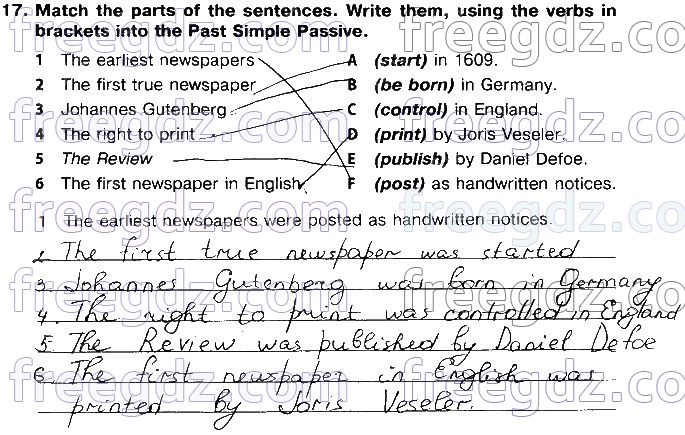 17. Match the parts of the sentences. Write them, using the verbs in
brackets into the Past Simple Passive.
1 The earliest newspapers A (start) in 1609.
2 The first true newspaper B (be born) in Germany.
3 Johannes Gutenberg C (control) in England.
4 The right to print D (print) by Joris Veseler.
5 The Review E (publish) by Daniel Defoe.
6 The first newspaper in English F (post) as handwritten notices.
1 The earliest newspapers were posted as handwritten notices.
2 The first true newspaper was started
3. Johannes Gutenberg was born in Germany
4. The right to print was controlled in England
5. The Review was published by Daniel Defoe
6. The first newspaper in English was
printed by Joris Veseler.
freegdz.com